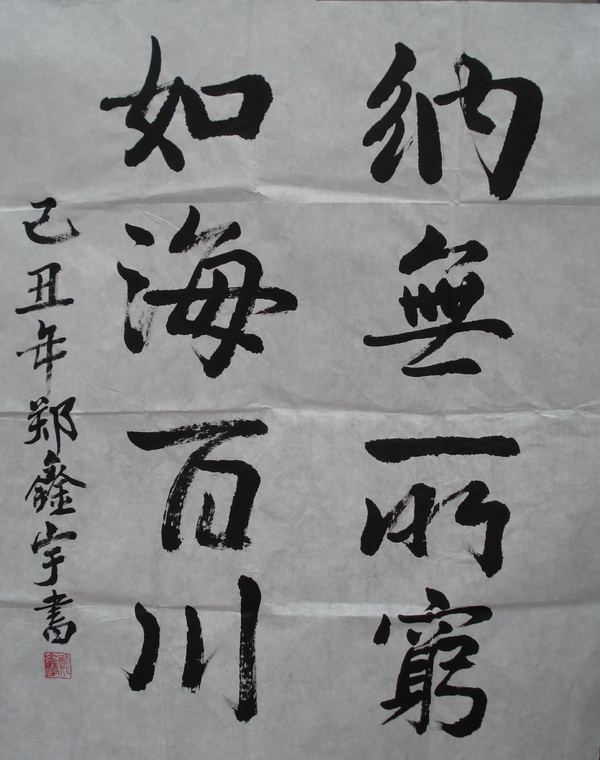 納無所窮
如海百川
己丑年郑鑫宇書